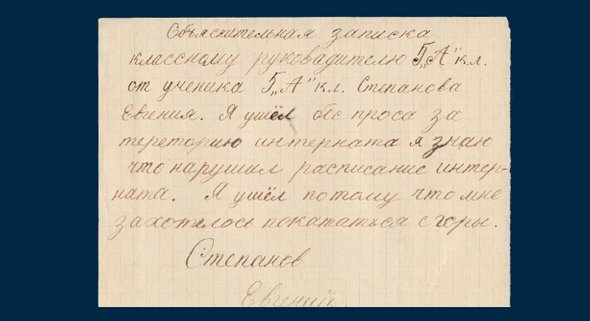 Объяснительная записка
классному руковадителю 5 „А" кл.
от ученика 5 „А" кл. Степанова
Евгения. Я ушёл бес проса за
тереторию интерната я знаю
что нарушил расписание интер-
ната. Я ушёл потому что мне
захотелось покататься с горы.
Степанов
Евгений.